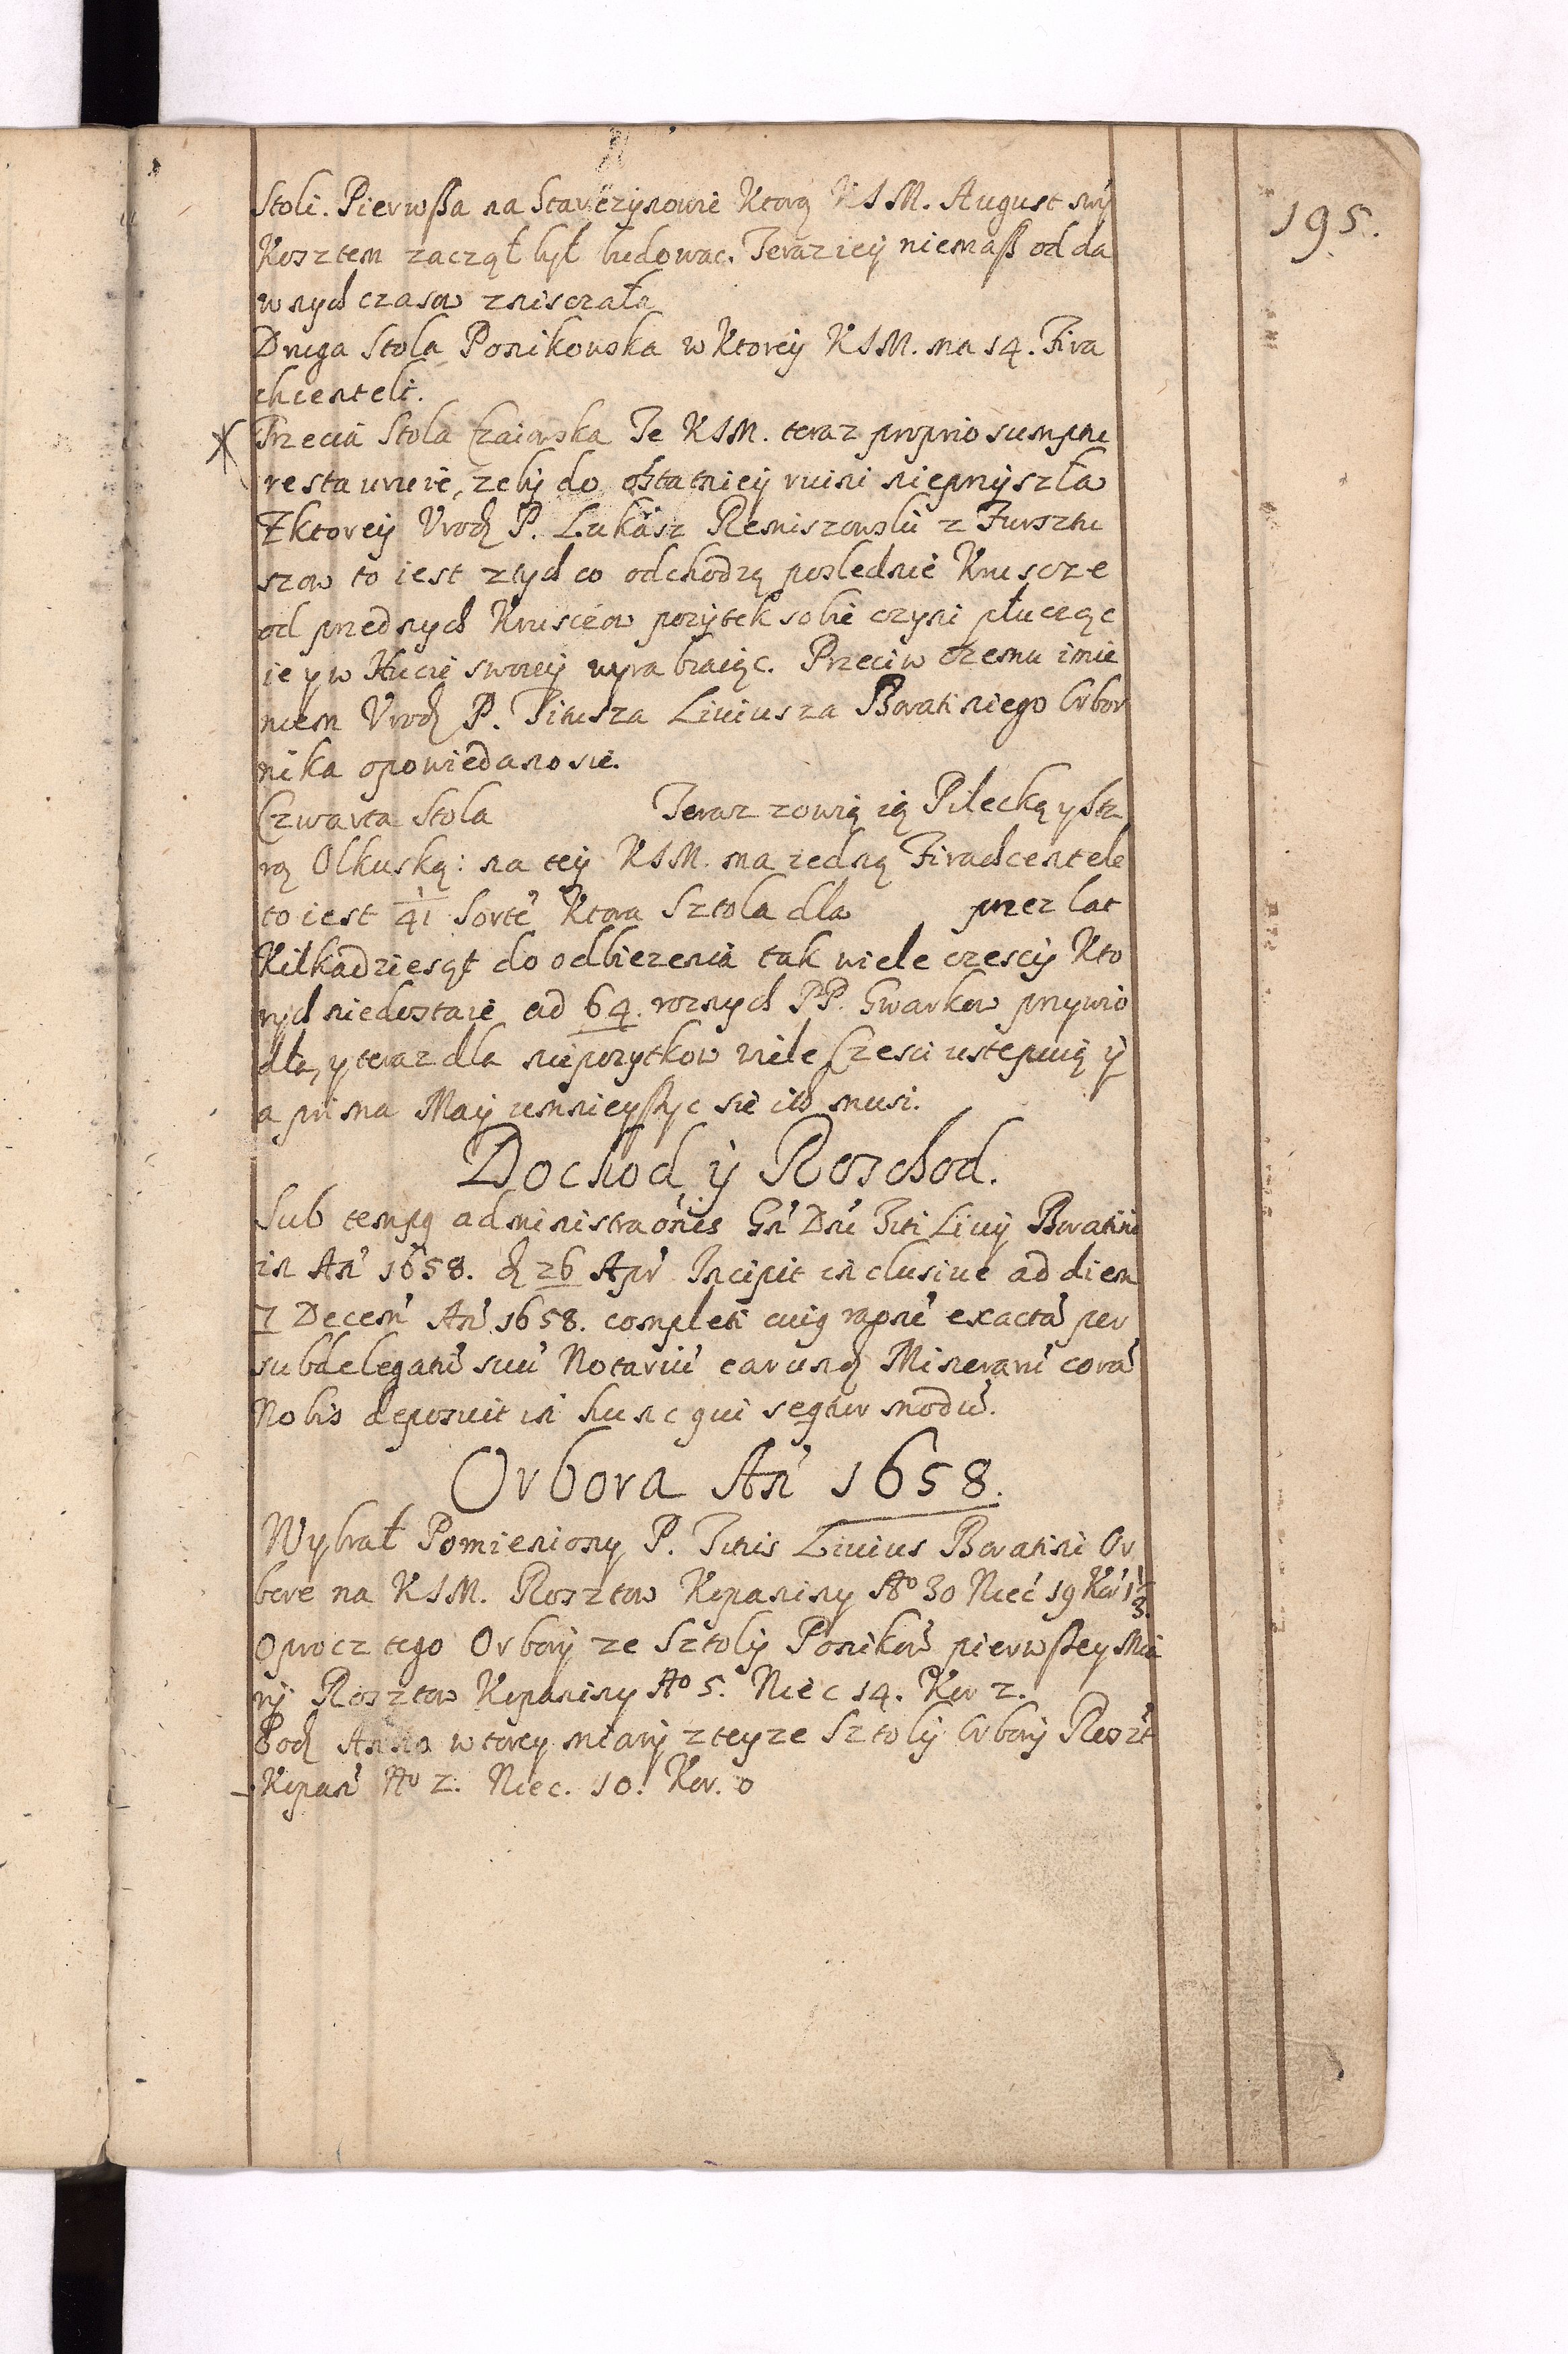 195.
Stoli. Pierwßa na Starczynowie Ktorą KJM. August swÿ
Kosztem zaczął był budowac. Teraz ieÿ niemaß od da
wnych czasow zniszczała
Druga Stola Ponikowska w Ktoreÿ KJM. ma 14. Fira
chcenteli.
Trzecia Stola Czaiowska Te KJM. teraz proprio sumptu
restauruie, zebÿ do ostatnieÿ ruini nieprzÿszła
Z ktoreÿ Urodz P. Lukasz Remiszowski z Fursztu
szow to iest z tych co odchodzą poslednie Kruscze
od przednych Kruscow pozytek sobie czyni płucząc
ie y w Hucie swoieÿ wyrabiaiąc. Przeciw czemu imie
niem Urodz P. Titusza Liviusza Boratiniego Orbor
nika opowiedano sie.
Czwarta Stola Teraz zowią ią Pilecką y Sta
rą Olkuską: na teÿ KJM. ma iedną Firachcentele
to iest 1/41 Sorte Ktora Sztola dla przez lat
Kilkadziesąt do odbiezenia tak wiele czesciÿ Kto
rych niedostaie ad 64. roznych PP. Gwarkow przywio
dła, y teraz dla niepozytkow wiele Czesci ustepuią ÿ
a prima Maÿ umnieyßyc sie ich musi.
Dochod ÿ Roschod.
Sub tempꝯ administraonis Gn̄ Dn̄i Titi Livÿ Boratini
in An̄ 1658. d 26 Apr Incipit inclusive ad diem
7 Decem An̄ 1658. completi cuiꝯ raone exacta per
subdelegatū suū Notariū earund Minerarū cora
Nobis deposuit in hunc qui seqtur modū.
Orbora An̄ 1658.
Wybrał Pomieniony P. Titus Livius Boratini Or
bore na KJM. Rosztow Kopaniny No 30 Niec 19 Kor 1 1/3.
Oprocz tego Orborÿ ze Sztolÿ Ponikow pierwßey Mia
rÿ Rosztow Kopaniny No 5. Niec 14. Kor 2.
Pod Anno wtorey miarÿ z teyze Sztolÿ Orborÿ Roszt
Kopan̄ No 2. Niec. 10. Kor. 0